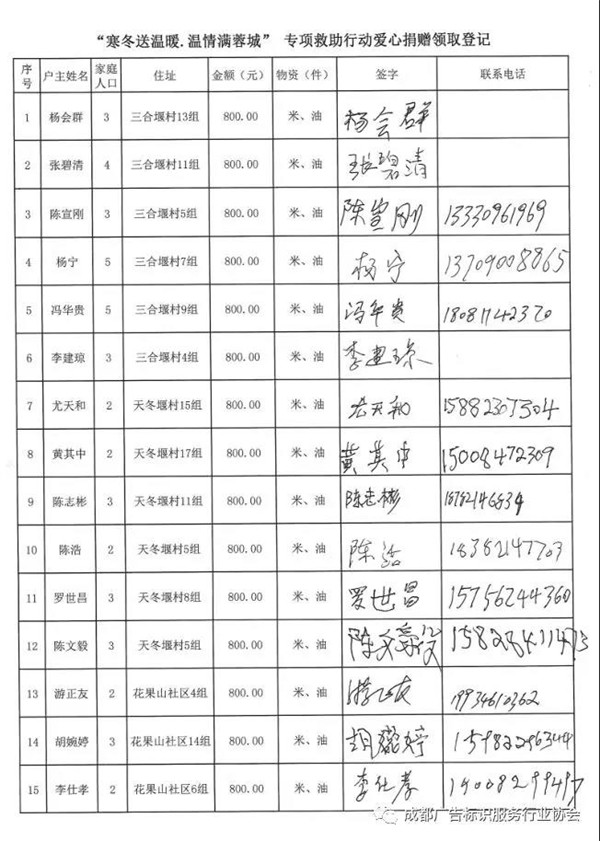 “寒冬送温暖.温情满蓉城” 专项救助行动爱心捐赠领取登记
序号 户主姓名 家庭人口 住址 金额（元） 物资（件） 签字 联系电话
1 杨会群 3 三合堰村13组 800.00 米、油 杨会群
2 张碧清 4 三合堰村11组 800.00 米、油 张碧清
3 陈宣刚 3 三合堰村5组 800.00 米、油 陈宣刚 13330961969
4 杨宁 5 三合堰村7组 800.00 米、油 杨宁 13709008865
5 冯华贵 5 三合堰村9组 800.00 米、油 冯华贵 18081142370
6 李建琼 3 三合堰村4组 800.00 米、油 李建琼
7 尤天和 2 天冬堰村15组 800.00 米、油 尤天和 15882307304
8 黄其中 2 天冬堰村17组 800.00 米、油 黄其中 15008472309
9 陈志彬 3 天冬堰村11组 800.00 米、油 陈志彬
10 陈浩 2 天冬堰村5组 800.00 米、油 陈浩 18382147703
11 罗世昌 3 天冬堰村8组 800.00 米、油 罗世昌 15756244360
12 陈文毅 3 天冬堰村5组 800.00 米、油 陈文毅
13 游正友 2 花果山社区4组 800.00 米、油 游正友 19934610362
14 胡婉婷 3 花果山社区14组 800.00 米、油 胡婉婷 15982296344
15 李仕孝 2 花果山社区6组 800.00 米、油 李仕孝
成都广告标识服务行业协会